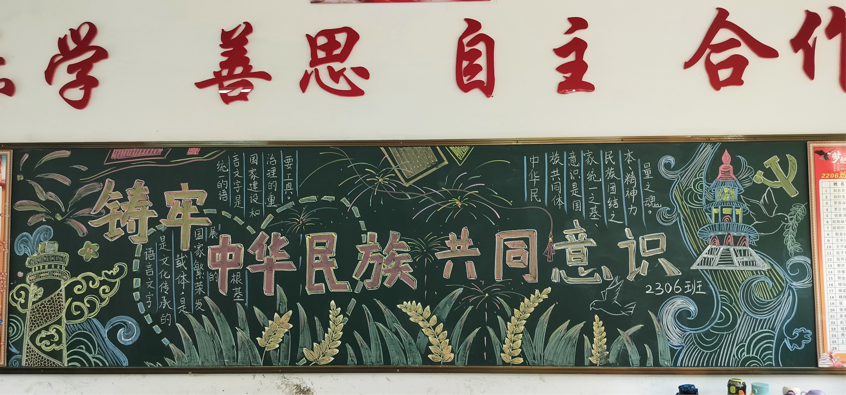 学 善思 自主 合作
铸牢
中华民族共同意识
统一的语
言文字是
国家建设和
治理的重
要工具。
语言文字
是文化传承的
载体,是
国家繁荣发
展的
根基
中华民
族共同体
意识是国
家统一之基、
民族团结之
本、精神力
量之魂。
2306班